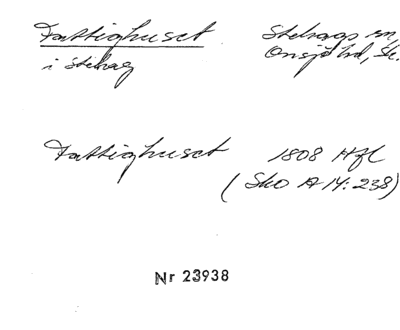 Fattighuset Stehags sn,
i Stehag Onsjö hd, Sk.
Fattighuset 1808 Hfl
(Sko A 14: 238)
Nr 23938